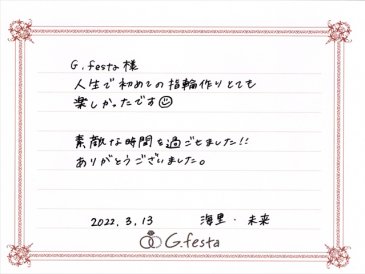 G.festa様
人生で初めての指輪作りとても
楽しかったです☺
素敵な時間を過ごせました!!
ありがとうございました。
2022.3.13 海里・未来
G.festa